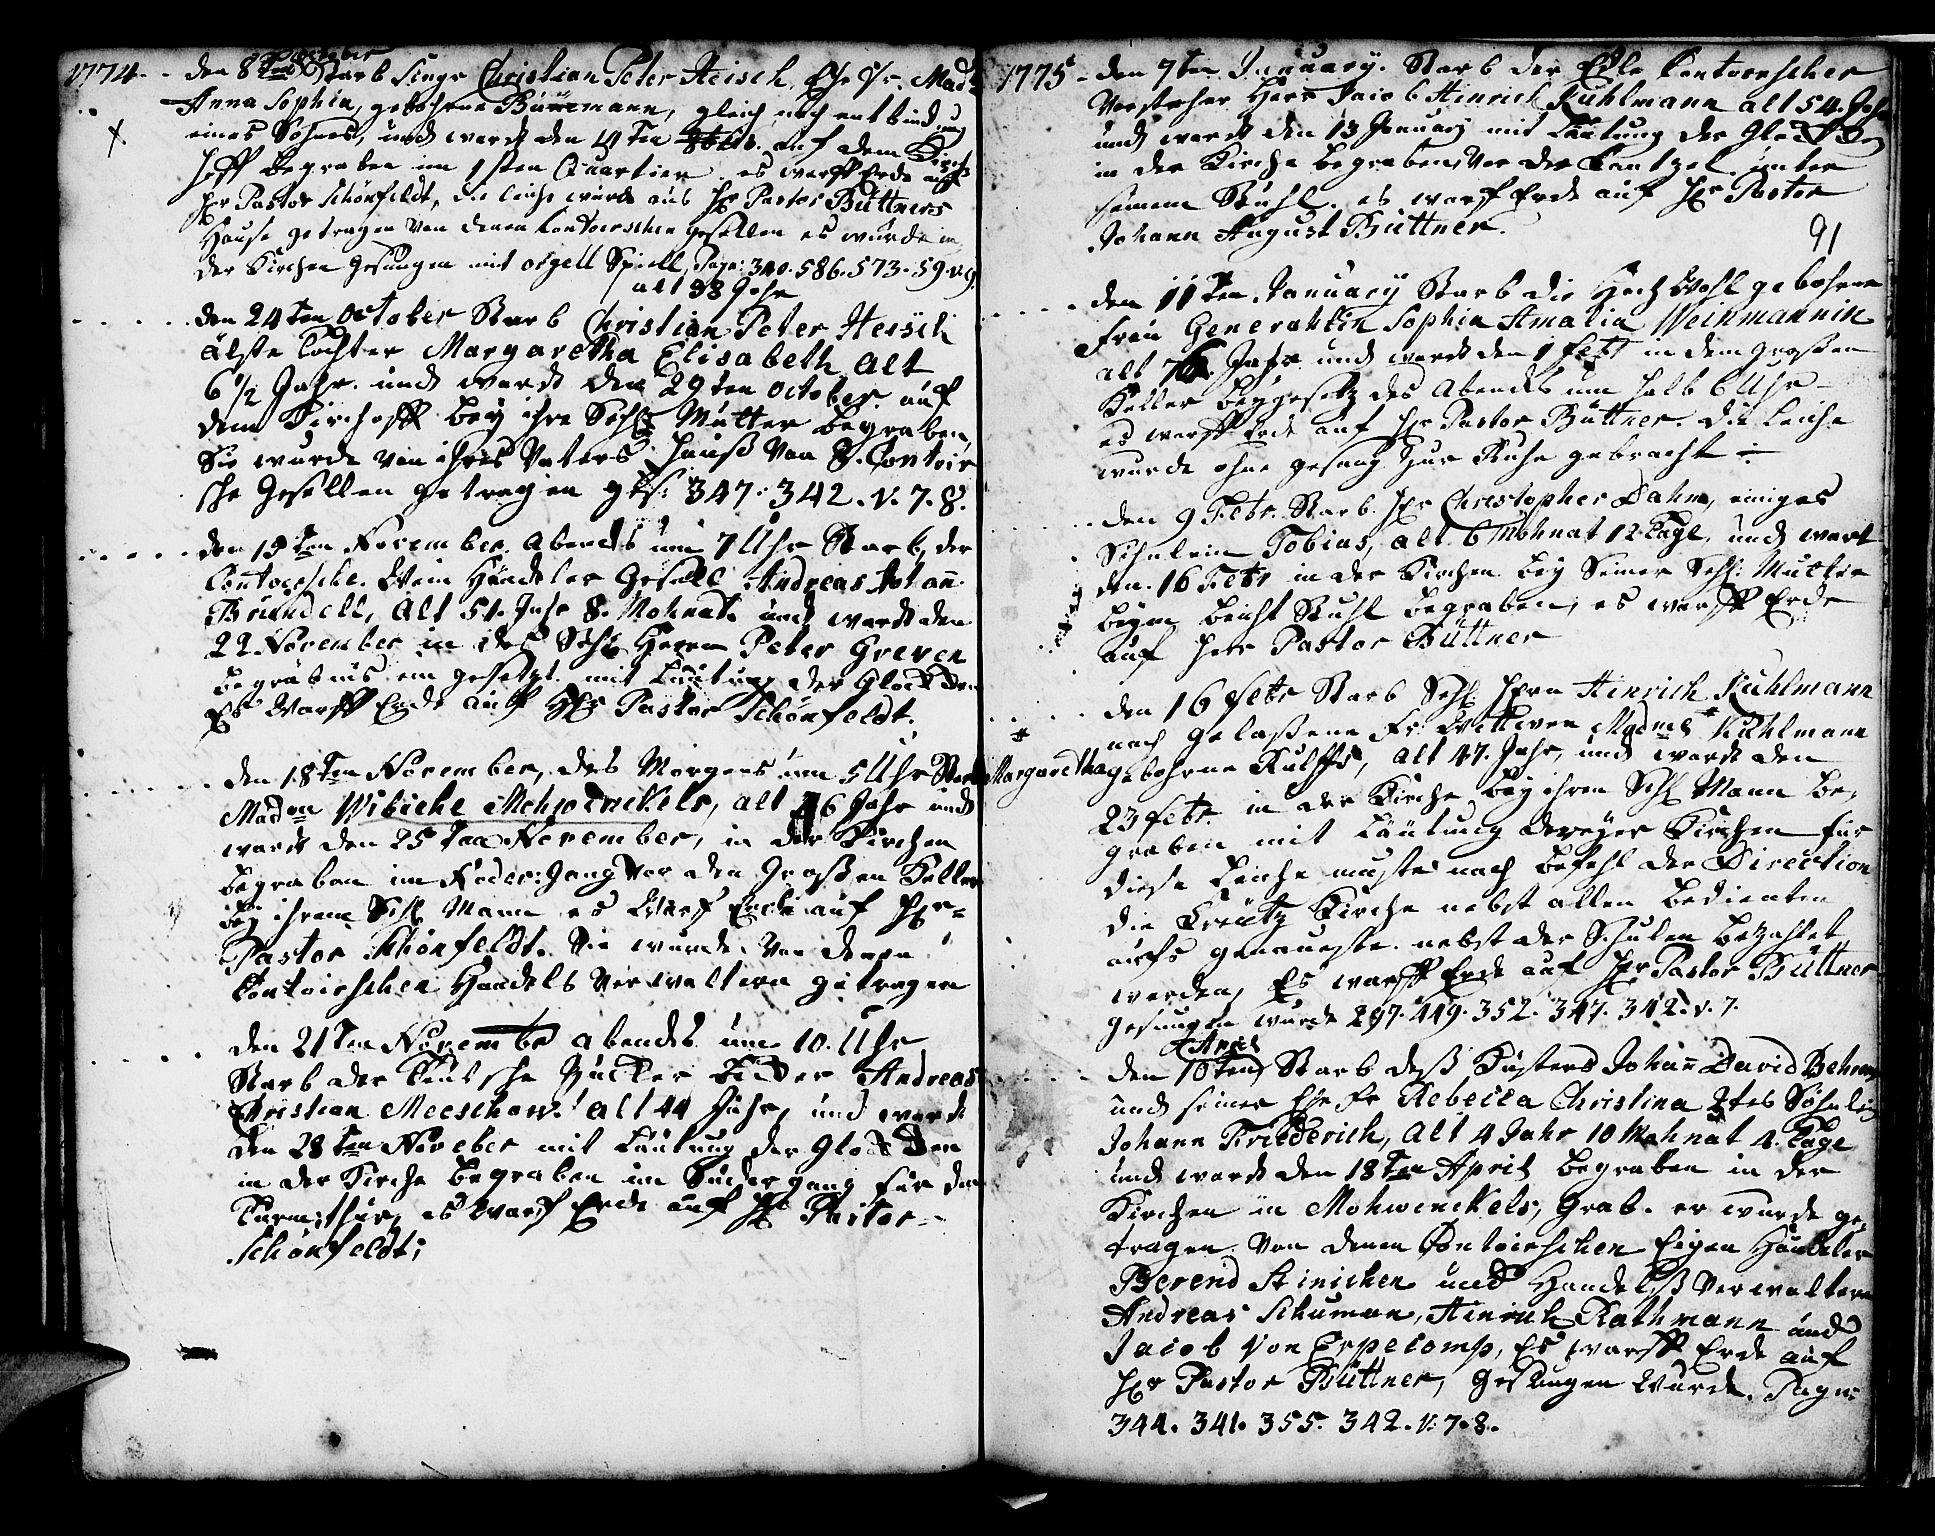 1774. den 8ten October Starb Singr Christian Peter Heisch Ehe Fr. Mad.
Anna Sophia, gebohrne Büüemann, gleich nach entbindung
eines Sohnes, und wardt den 14Ten auf dem Kirch
hoff begraben im 1sten Quartier. es warff Erde auff
Hr Pastor Schönfeldt, die leiche wurde aus Hr Pastor Büttners
Hause getragen von denen Contoirschen gesellen es wurde in
der Kirchen gesungen mit orgell Spiell, Page: 340. 586. 573. 59. v. 9.
alt 38 Jahr
den 24ten October Starb Christian Peter Heisch
älste Tochter Margaretha Elisabeth alt
6 1/2 Jahr. und wardt den 29ten October auf
dem Kirchoff bey ihre Sehl. Mutter begraben,
Sie wurde von ihres Vaters Hauß von 8. Contoir
sche Gesellen getragen ges: 347. 342. v. 7. 8.
den 15ten November abends um 7 Uhr Starb der
Contoirsche Wein Händeler Gesell Andreas Johann
Brundell, alt 51. Jahr 8. Mohnat. und wardt den
22 November in des Sehl Herrn Peter Greven
begräbnis ein gesetzt mit Läutung der Glocken
Es Warff Erde auf Hr Pastor Schönfeldt.
den 18ten November, des Morgens um 5 Uhr Starb
Madm Wibiche Mohwinckels, alt 46 Jahr und
wardt den 25ten November, in der Kirchen
begraben im Norder: Gang vor den Großen Keller
bey ihrem Sehl Mann es Warf Erde auf Hr
Pastor Schönfeldt. Sie wurde von denen
Contoirschen Handels Verwaltern getragen
den 21ten November abends um 10. Uhr
Starb der Teutsche Zucker becker Andreas
Christian Meeschow. alt 44 Jahr, und wardt
den 28ten November mit Läutung der Glocken
in der Kirche begraben im Süder gang für der
Turm: thür, es Warf Erde auf Hr Pastor
Schönfeldt;
1775 - den 7ten January. Starb der Edle Contoirscher
Vorsteher Herr Jacob Hinrich Kuhlmann alt 54. Jahr
und wardt den 13 January mit Läutung der Glocken
in der Kirche begraben vor der Cantzel unter
seinem Stuhl. es warf Erde auf Hr Pastor
Johann August Büttner.
91
den 11ten January Starb die Hoch Wohl gebohrne
Frau Generahlin Sophia Amalia Weinmannin
alt Jahr. und wardt den 1 Febr in dem großen
Keller beygesetz des Abends um halb 6 Uhr
es warff Erde auf Hr Pastor Büttner. die Leiche
wurde ohne gesang zur Ruhe gebracht
den 9 Febr. Starb Hr Christopher Dahm, einiges
Söhnlein Tobias, alt 6 Mohnat 12 Tage, und wart
den 16 Febr in der Kirchen bey Seiner Sehl: Mutter
beym beicht Stuhl begraben; es warff Erde
auf Herr Pastor Büttner
den 16 febr Starb Sehl. Herrn Hinrich Kuhlmann
nach gelaßene Fr: Wittwen Madme * Kuhlmann
* Margaretha gebohrne Rulffs, alt 47. Jahr, und wardt den
23 febr. in der Kirche bey ihren Sehl Mann be,
graben mit Läutung dreyer Kirchen für
diese Leiche muste nach befehl der Direction
die Creutz Kirche nebst allen bedienten
aufs genaueste nebst der Schulen bezahlet
werden, Es warff Erde auf Hr Pastor Büttner
gesungen wurde 297. 449. 352. 347. 342. v. 7.
den 10ten April Starb deß Küsters Johann David Behrens
und seiner Ehe Fr Rebecca Christina 2tes Söhnlein
Johann Friederich, alt 4 Jahr 10 Mohnat 4. Tage
und wardt den 18ten April begraben in der
Kirchen in Mohwinckels, Grab. er wurde ge,
tragen von denen Contoirschen Eigen Händeler
Berend Steinichen und Handelß Verwaltern
Andreas Schuman, Hinrich Rathmann und
Jacob von Eppecomp, Es warff Erde auf
Hr Pastor Büttner, Gesungen Wurde. Pagin:
344. 341. 355. 342. v. 7. 8.